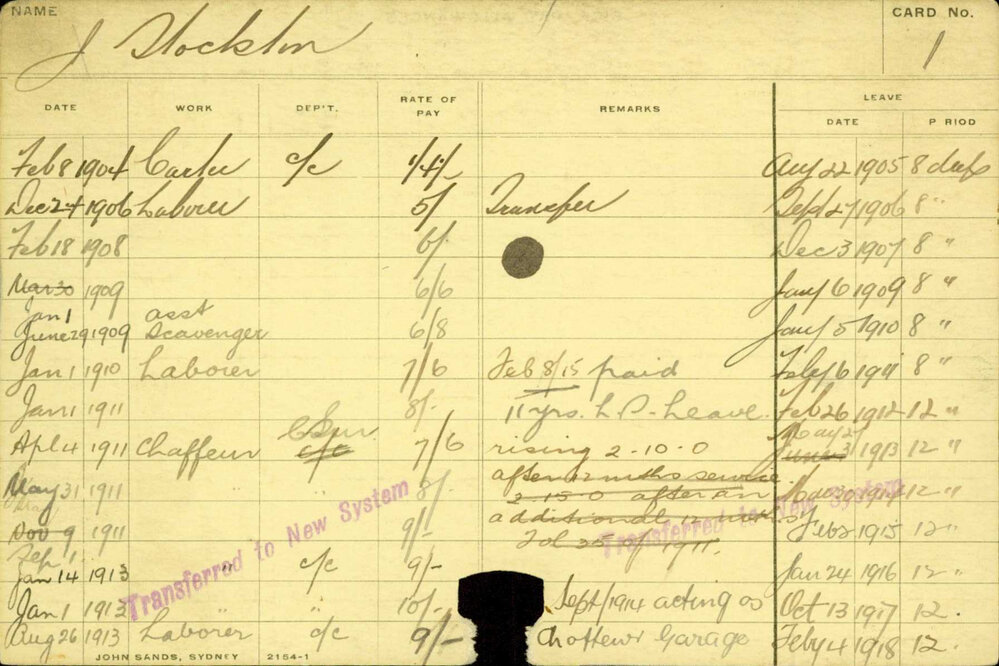 NAME J Stockton CARD No. 1
DATE WORK DEP'T. RATE OF PAY REMARKS LEAVE DATE P RIOD
Feb 8 1904 Carter c/c 1/4/- Aug 22 1905 8 days
Dec 24 1906 Laborer 5/ Transfer Sept 27 1906 8 "
Feb 18 1908 6/- Dec 3 1907 8 "
Mar 30 1909 6/6 Jany 6 1909 8 "
Jan 1 asst
June 29 1909 Scavenger 6/8 Jany 5 1910 8 "
Jan 1 1910 Laborer 7/6 Feb 8/15 paid Feby 6 1911 8 "
Jan 1 1911 8/- 11 yrs. L.P. Leave. Feb 26 1912 12 "
Apl 4 1911 Chaffeur c/c 7/6 rising 2-10-0 1913 12 "
May 31 1911 " 8/ after 12 mths service
2-15-0 after an 1914 12 "
Nov 9 1911 9/- additional 12 Feb 2 1915 12 "
Sep 1
Jan 14 1913 " c/c 9/- 1911. Jan 24 1916 12 "
Transferred to New System
Transferred to New System
Jan 1 1913 " 10/- Sept/1914 acting as Oct 13 1917 12.
Aug 26 1913 Laborer c/c 9/- Chaffeur Garage Feby 4 1918 12.
JOHN SANDS, SYDNEY 2154-1